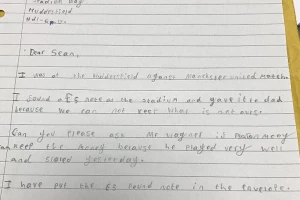 Stadium Way
Huddersfield
HD1
Dear Sean,
I was at the Huddersfield against Manchester united Match.
I found a £5 note at the stadium and gave it to dad
because we can not keep what is not ours.
Can you please ask Mr Wagner if Mooy
can keep the money because he played very well
and scored yesterday.
I have put the £5 pound note in the envelope.